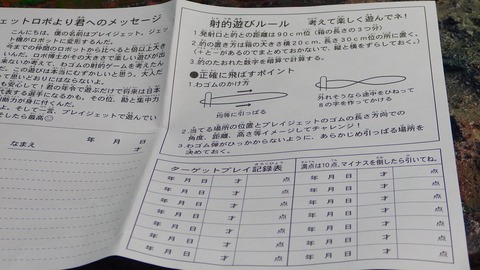 ェットロボより君へのメッセージ
こんにちは、僕の名前はプレイジェット。ジェッ
ト機がロボットに変形するんだ。
今までの仲間のロボットから比べると倍以上大き
いんだ。ロボ博士がその大きさで楽しい遊びが出
来ないか考えて、わゴムの射的ゲームを考えたん
だ。この遊びは本当にむずかしいと思う。大人だ
って思いどおりにはならないよ。
も安心して！君の年令で遊ぶだけで将来は日本
代表する選手になるかも。その位、勘と集中力
断力が身に付くんだ。
よ。そして一言、プレイジェットで遊んでい
そしたら最高😊
なまえ
年　月　日
才
射的遊びルール　考えて楽しく遊んでネ！
1.発射口と的との距離は90cm位（箱の長さの3つ分）
2.的の置き方は箱の大きさ横20cm、長さ30cm位の所に置く。
（＋と－があるのでまとめておかないで、縦と横をずらしておく。）
3.的のたおれた数字を積算で計算する。
●正確に飛ばすポイント
1.わゴムのかけ方
均等に引っぱる
外れそうなら途中をひねって
8の字を作ってかける
2.当てる場所の位置とプレイジェットのゴムの長さ方向での
角度、距離、高さ等イメージしてチャレンジ！
3.わゴム弾がひっかからないように、あらかじめ引っぱる場所を
決めておく。
ターゲットプレイ記録表
満点は10点、マイナスを倒したら引いてね。
年　月　日　才　点　年　月　日　才　点
年　月　日　才　点　年　月　日　才　点
年　月　日　才　点　年　月　日　才　点
年　月　日　才　点　年　月　日　才　点
年　月　日　才　点　年　月　日　才　点
年　月　日　才　点　年　月　日　才　点